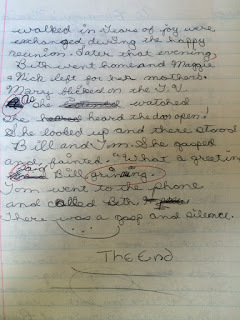 walked in Tears of joy were
exchanged during the happy
reunion. Later that evening,
Beth went home and Maggie
& Nick left for her mothers.
Mary fliked on the T.V.
As she watched
She heard the dor open!
She looked up and there stood
Bill and Tom. She gasped
and fainted. "What a greetin
said Bill grining.
Tom went to the phone
and called Beth
There was a gasp and silence.
The End